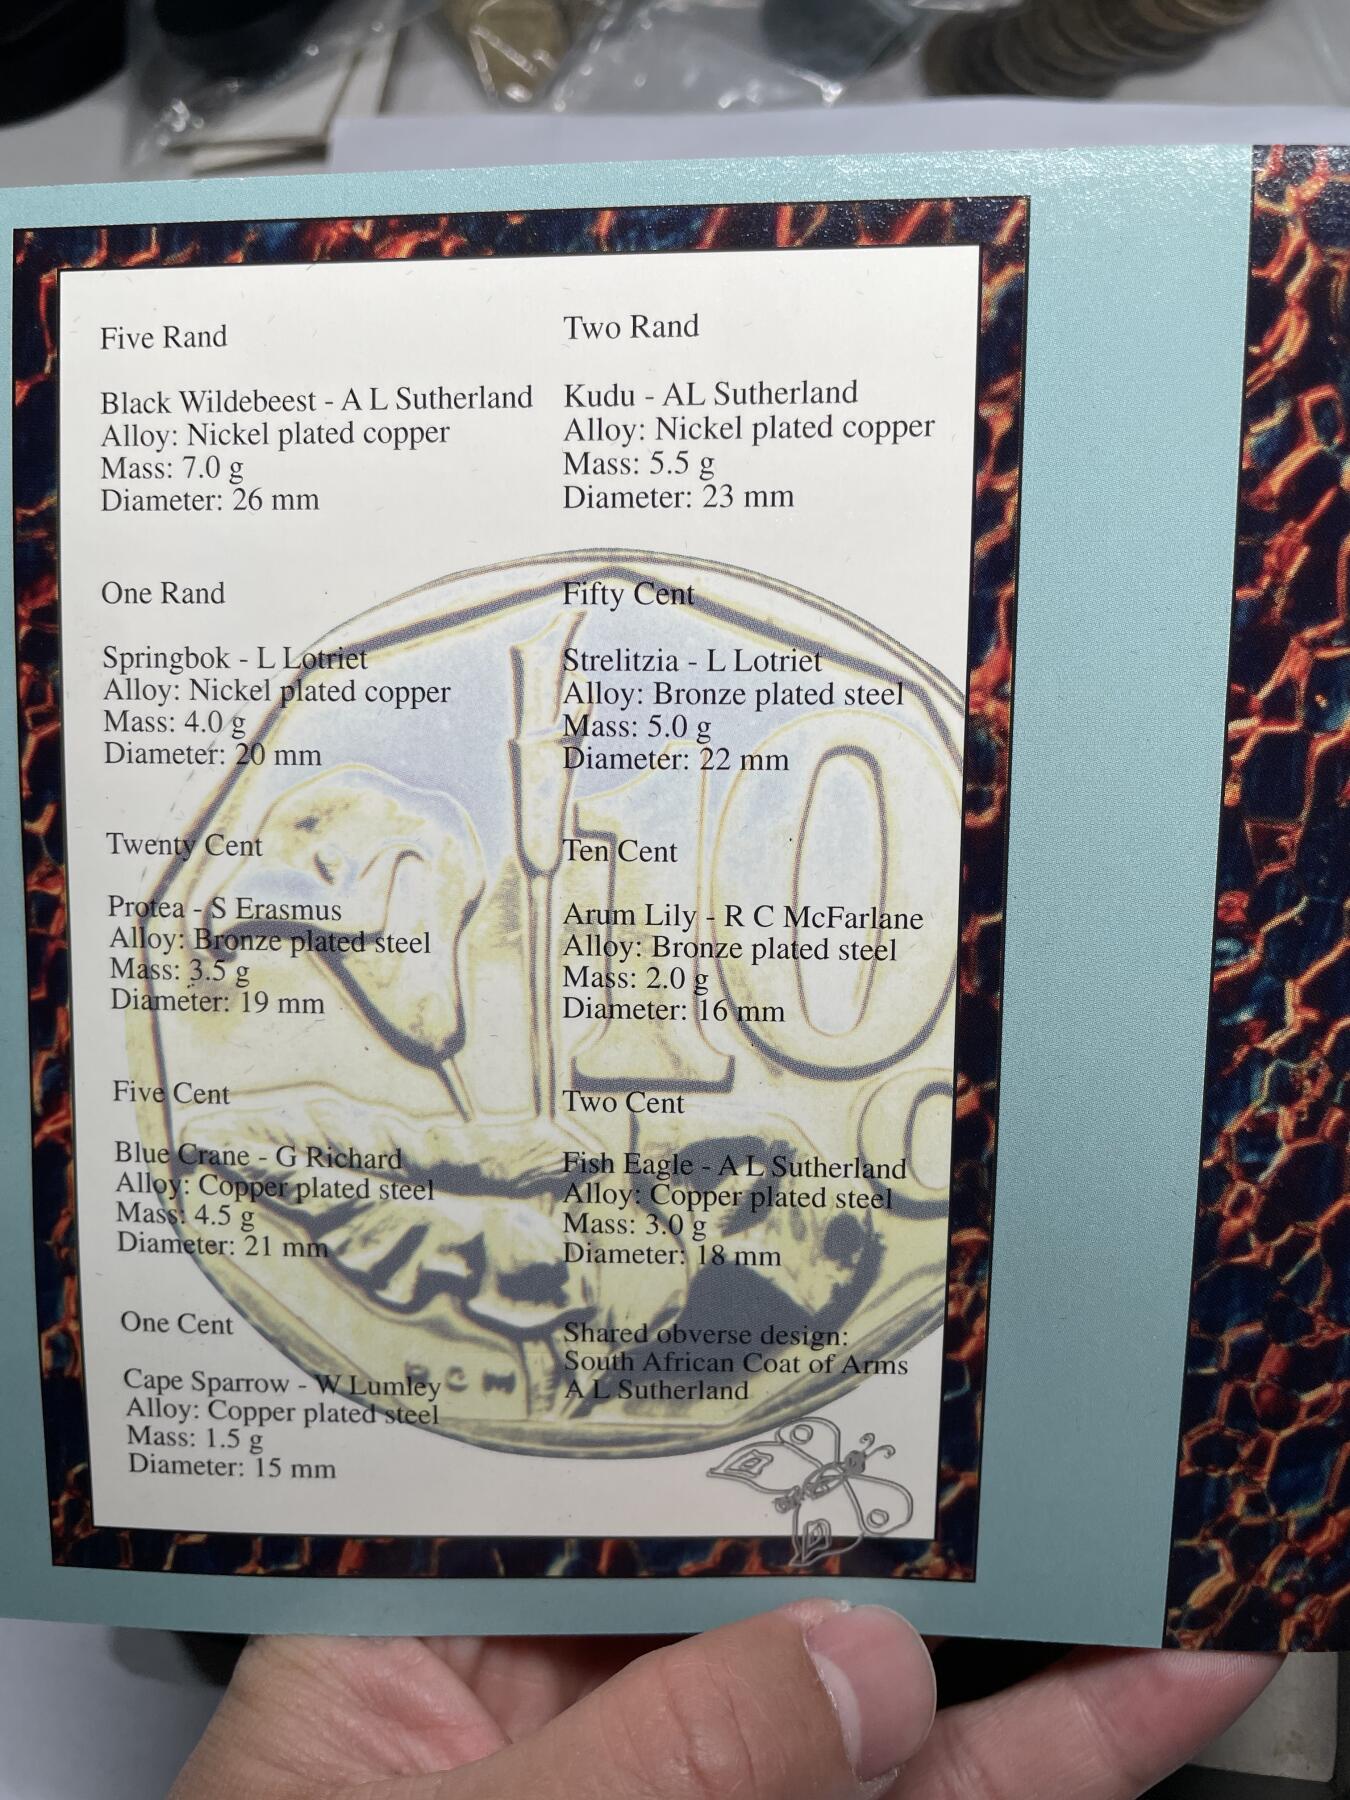 Five Rand
Black Wildebeest - A L Sutherland
Alloy: Nickel plated copper
Mass: 7.0 g
Diameter: 26 mm
Two Rand
Kudu - AL Sutherland
Alloy: Nickel plated copper
Mass: 5.5 g
Diameter: 23 mm
One Rand
Springbok - L Lotriet
Alloy: Nickel plated copper
Mass: 4.0 g
Diameter: 20 mm
Fifty Cent
Strelitzia - L Lotriet
Alloy: Bronze plated steel
Mass: 5.0 g
Diameter: 22 mm
Twenty Cent
Protea - S Erasmus
Alloy: Bronze plated steel
Mass: 3.5 g
Diameter: 19 mm
Ten Cent
Arum Lily - R C McFarlane
Alloy: Bronze plated steel
Mass: 2.0 g
Diameter: 16 mm
Five Cent
Blue Crane - G Richard
Alloy: Copper plated steel
Mass: 4.5 g
Diameter: 21 mm
Two Cent
Fish Eagle - A L Sutherland
Alloy: Copper plated steel
Mass: 3.0 g
Diameter: 18 mm
One Cent
Cape Sparrow - W Lumley
Alloy: Copper plated steel
Mass: 1.5 g
Diameter: 15 mm
Shared obverse design:
South African Coat of Arms
A L Sutherland
10
c
RCM